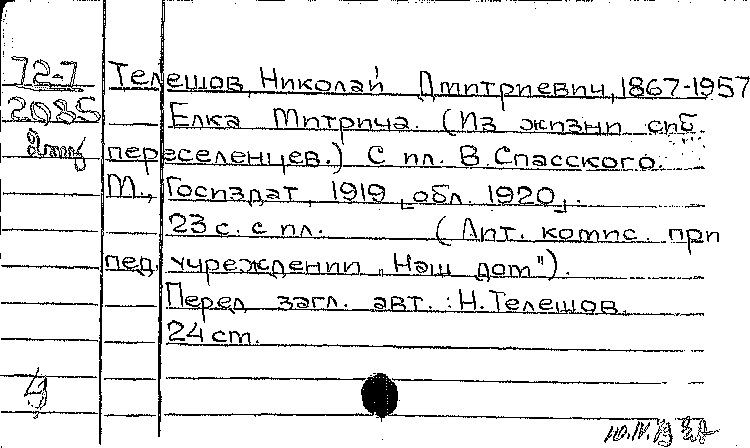 72-7 Телешов, Николай Дмитриевич, 1867-1957
2085 Елка Митрича. (Из жизни спб.
переселенцев.) С ил. В. Спасского.
М., Госиздат, 1919 [обл. 1920].
23 с. с ил. (Лит. комис. при
пед. учреждении „Наш дом").
Перед загл. авт.: Н. Телешов.
24 ст.